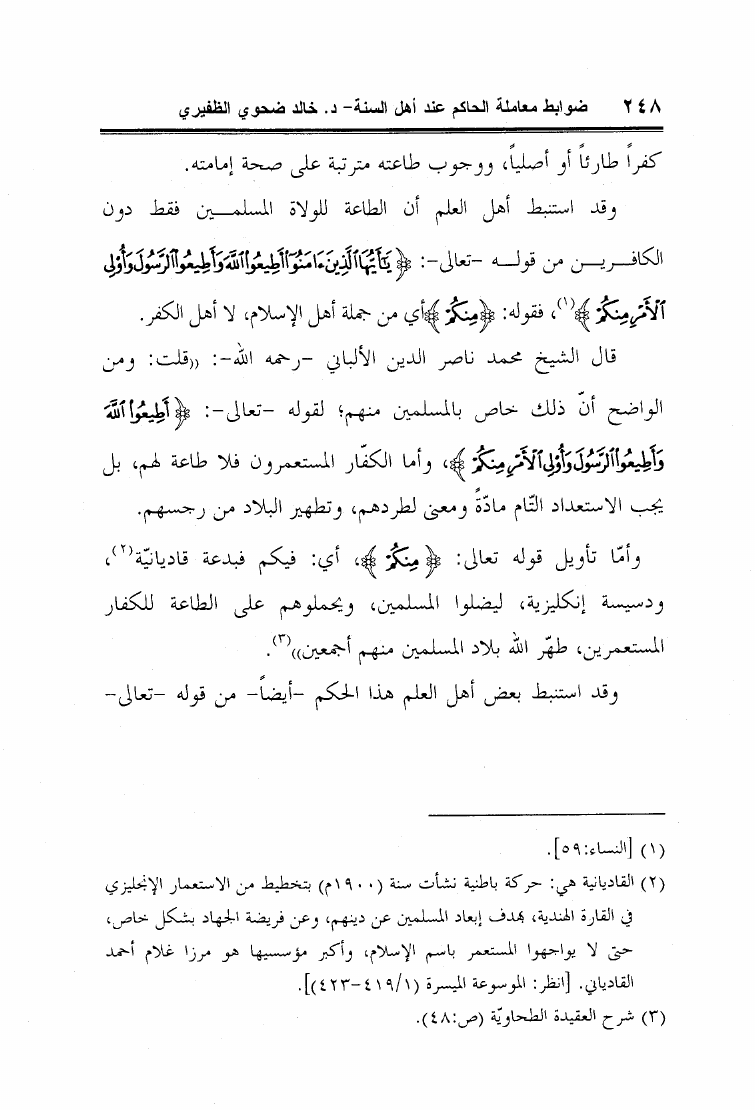 ٢٤٨ ضوابط معاملة الحاكم عند أهل السنة- د. خالد ضحوي الظفيري
كفراً طارئاً أو أصلياً، ووجوب طاعته مترتبة على صحة إمامته.
وقد استنبط أهل العلم أن الطاعة للولاة المسلمـــين فقط دون
الكافـــريـــن من قولـــه -تعالى-: ﴿يَٰٓأَيُّهَا ٱلَّذِينَ ءَامَنُوٓا۟ أَطِيعُوا۟ ٱللَّهَ وَأَطِيعُوا۟ ٱلرَّسُولَ وَأُو۟لِى
ٱلْأَمْرِ مِنكُمْ﴾(١)، فقوله: ﴿مِنكُمْ﴾أي من جملة أهل الإسلام، لا أهل الكفر.
قال الشيخ محمد ناصر الدين الألباني -رحمه الله-: ((قلت: ومن
الواضح أنّ ذلك خاص بالمسلمين منهم؛ لقوله -تعالى-: ﴿أَطِيعُوا۟ ٱللَّهَ
وَأَطِيعُوا۟ ٱلرَّسُولَ وَأُو۟لِى ٱلْأَمْرِ مِنكُمْ﴾، وأما الكفّار المستعمرون فلا طاعة لهم، بل
يجب الاستعداد التّام مادّةً ومعنى لطردهم، وتطهير البلاد من رجسهم.
وأمّا تأويل قوله تعالى: ﴿مِنكُمْ﴾، أي: فيكم فبدعة قاديانيّة(٢)،
ودسيسة إنكليزية، ليضلوا المسلمين، ويحملوهم على الطاعة للكفار
المستعمرين، طهّر الله بلاد المسلمين منهم أجمعين))(٣).
وقد استنبط بعض أهل العلم هذا الحكم -أيضاً- من قوله -تعالى-
(١) [النساء:٥٩].
(٢) القاديانية هي: حركة باطنية نشأت سنة (١٩٠٠م) بتخطيط من الاستعمار الإنجليزي
في القارة الهندية، بهدف إبعاد المسلمين عن دينهم، وعن فريضة الجهاد بشكل خاص،
حتى لا يواجهوا المستعمر باسم الإسلام، وأكبر مؤسسيها هو مرزا غلام أحمد
القادياني. [انظر: الموسوعة الميسرة (٤١٩/١-٤٢٣)].
(٣) شرح العقيدة الطحاويّة (ص:٤٨).